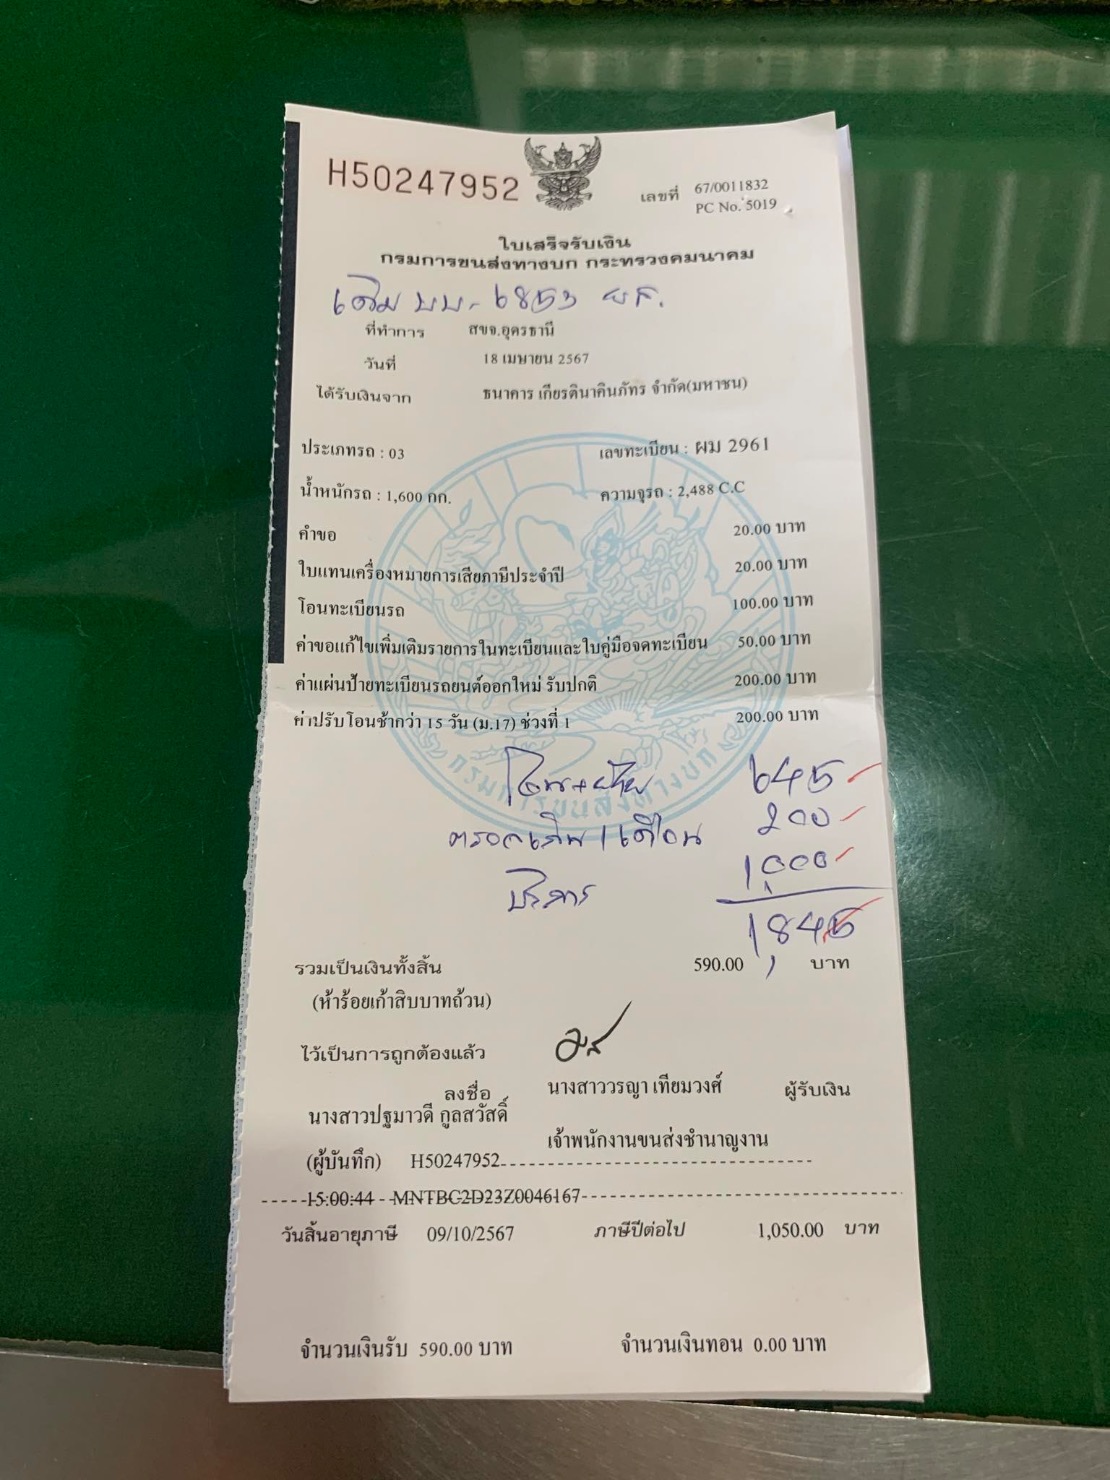 H50247952
เลขที่ 67/0011832
PC No. 5019
ใบเสร็จรับเงิน
กรมการขนส่งทางบก กระทรวงคมนาคม
เดิม บบ-6853 
ที่ทำการ สขจ.อุดรธานี
วันที่ 18 เมษายน 2567
ได้รับเงินจาก ธนาคาร เกียรตินาคินภัทร จำกัด(มหาชน)
ประเภทรถ : 03 เลขทะเบียน : ผม 2961
น้ำหนักรถ : 1,600 กก. ความจุรถ : 2,488 C.C
คำขอ 20.00 บาท
ใบแทนเครื่องหมายการเสียภาษีประจำปี 20.00 บาท
โอนทะเบียนรถ 100.00 บาท
ค่าขอแก้ไขเพิ่มเติมรายการในทะเบียนและใบคู่มือจดทะเบียน 50.00 บาท
ค่าแผ่นป้ายทะเบียนรถยนต์ออกใหม่ รับปกติ 200.00 บาท
ค่าปรับโอนช้ากว่า 15 วัน (ม.17) ช่วงที่ 1 200.00 บาท
กรมการขนส่งทางบก
โอน+ป้าย 645
1 เดือน 200
บริการ 1,000
1,845
รวมเป็นเงินทั้งสิ้น 590.00 บาท
(ห้าร้อยเก้าสิบบาทถ้วน)
ไว้เป็นการถูกต้องแล้ว
ลงชื่อ นางสาววรญา เทียมวงศ์ ผู้รับเงิน
นางสาวปฐมาวดี กูลสวัสดิ์
เจ้าพนักงานขนส่งชำนาญงาน
(ผู้บันทึก) H50247952
15:00:44 MNTBC2D23Z0046167
วันสิ้นอายุภาษี 09/10/2567 ภาษีปีต่อไป 1,050.00 บาท
จำนวนเงินรับ 590.00 บาท จำนวนเงินทอน 0.00 บาท